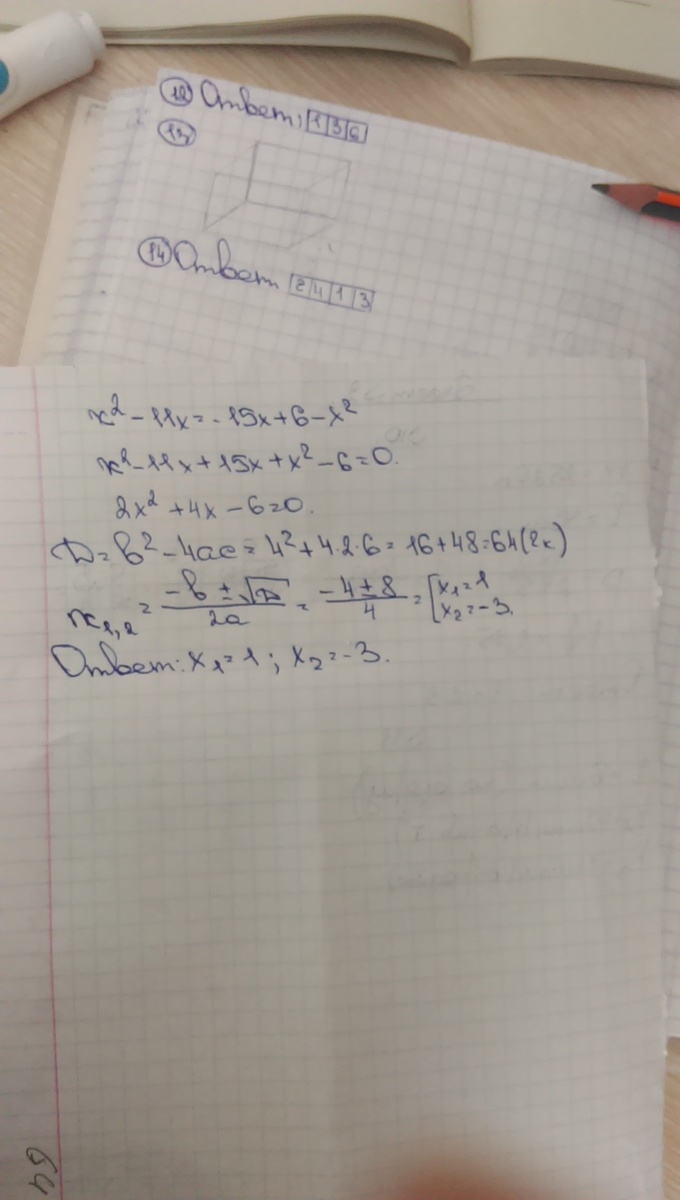 12 Ответ: 136
13
14 Ответ 2413
x² - 11x = -15x + 6 - x²
x² - 11x + 15x + x² - 6 = 0.
2x² + 4x - 6 = 0.
D = b² - 4ac = 4² + 4·2·6 = 16 + 48 = 64 (2к)
x₁,₂ = (-b ± √D)/2a = (-4 ± 8)/4 = [x₁ = 1 x₂ = -3.
Ответ: x₁ = 1; x₂ = -3.
64